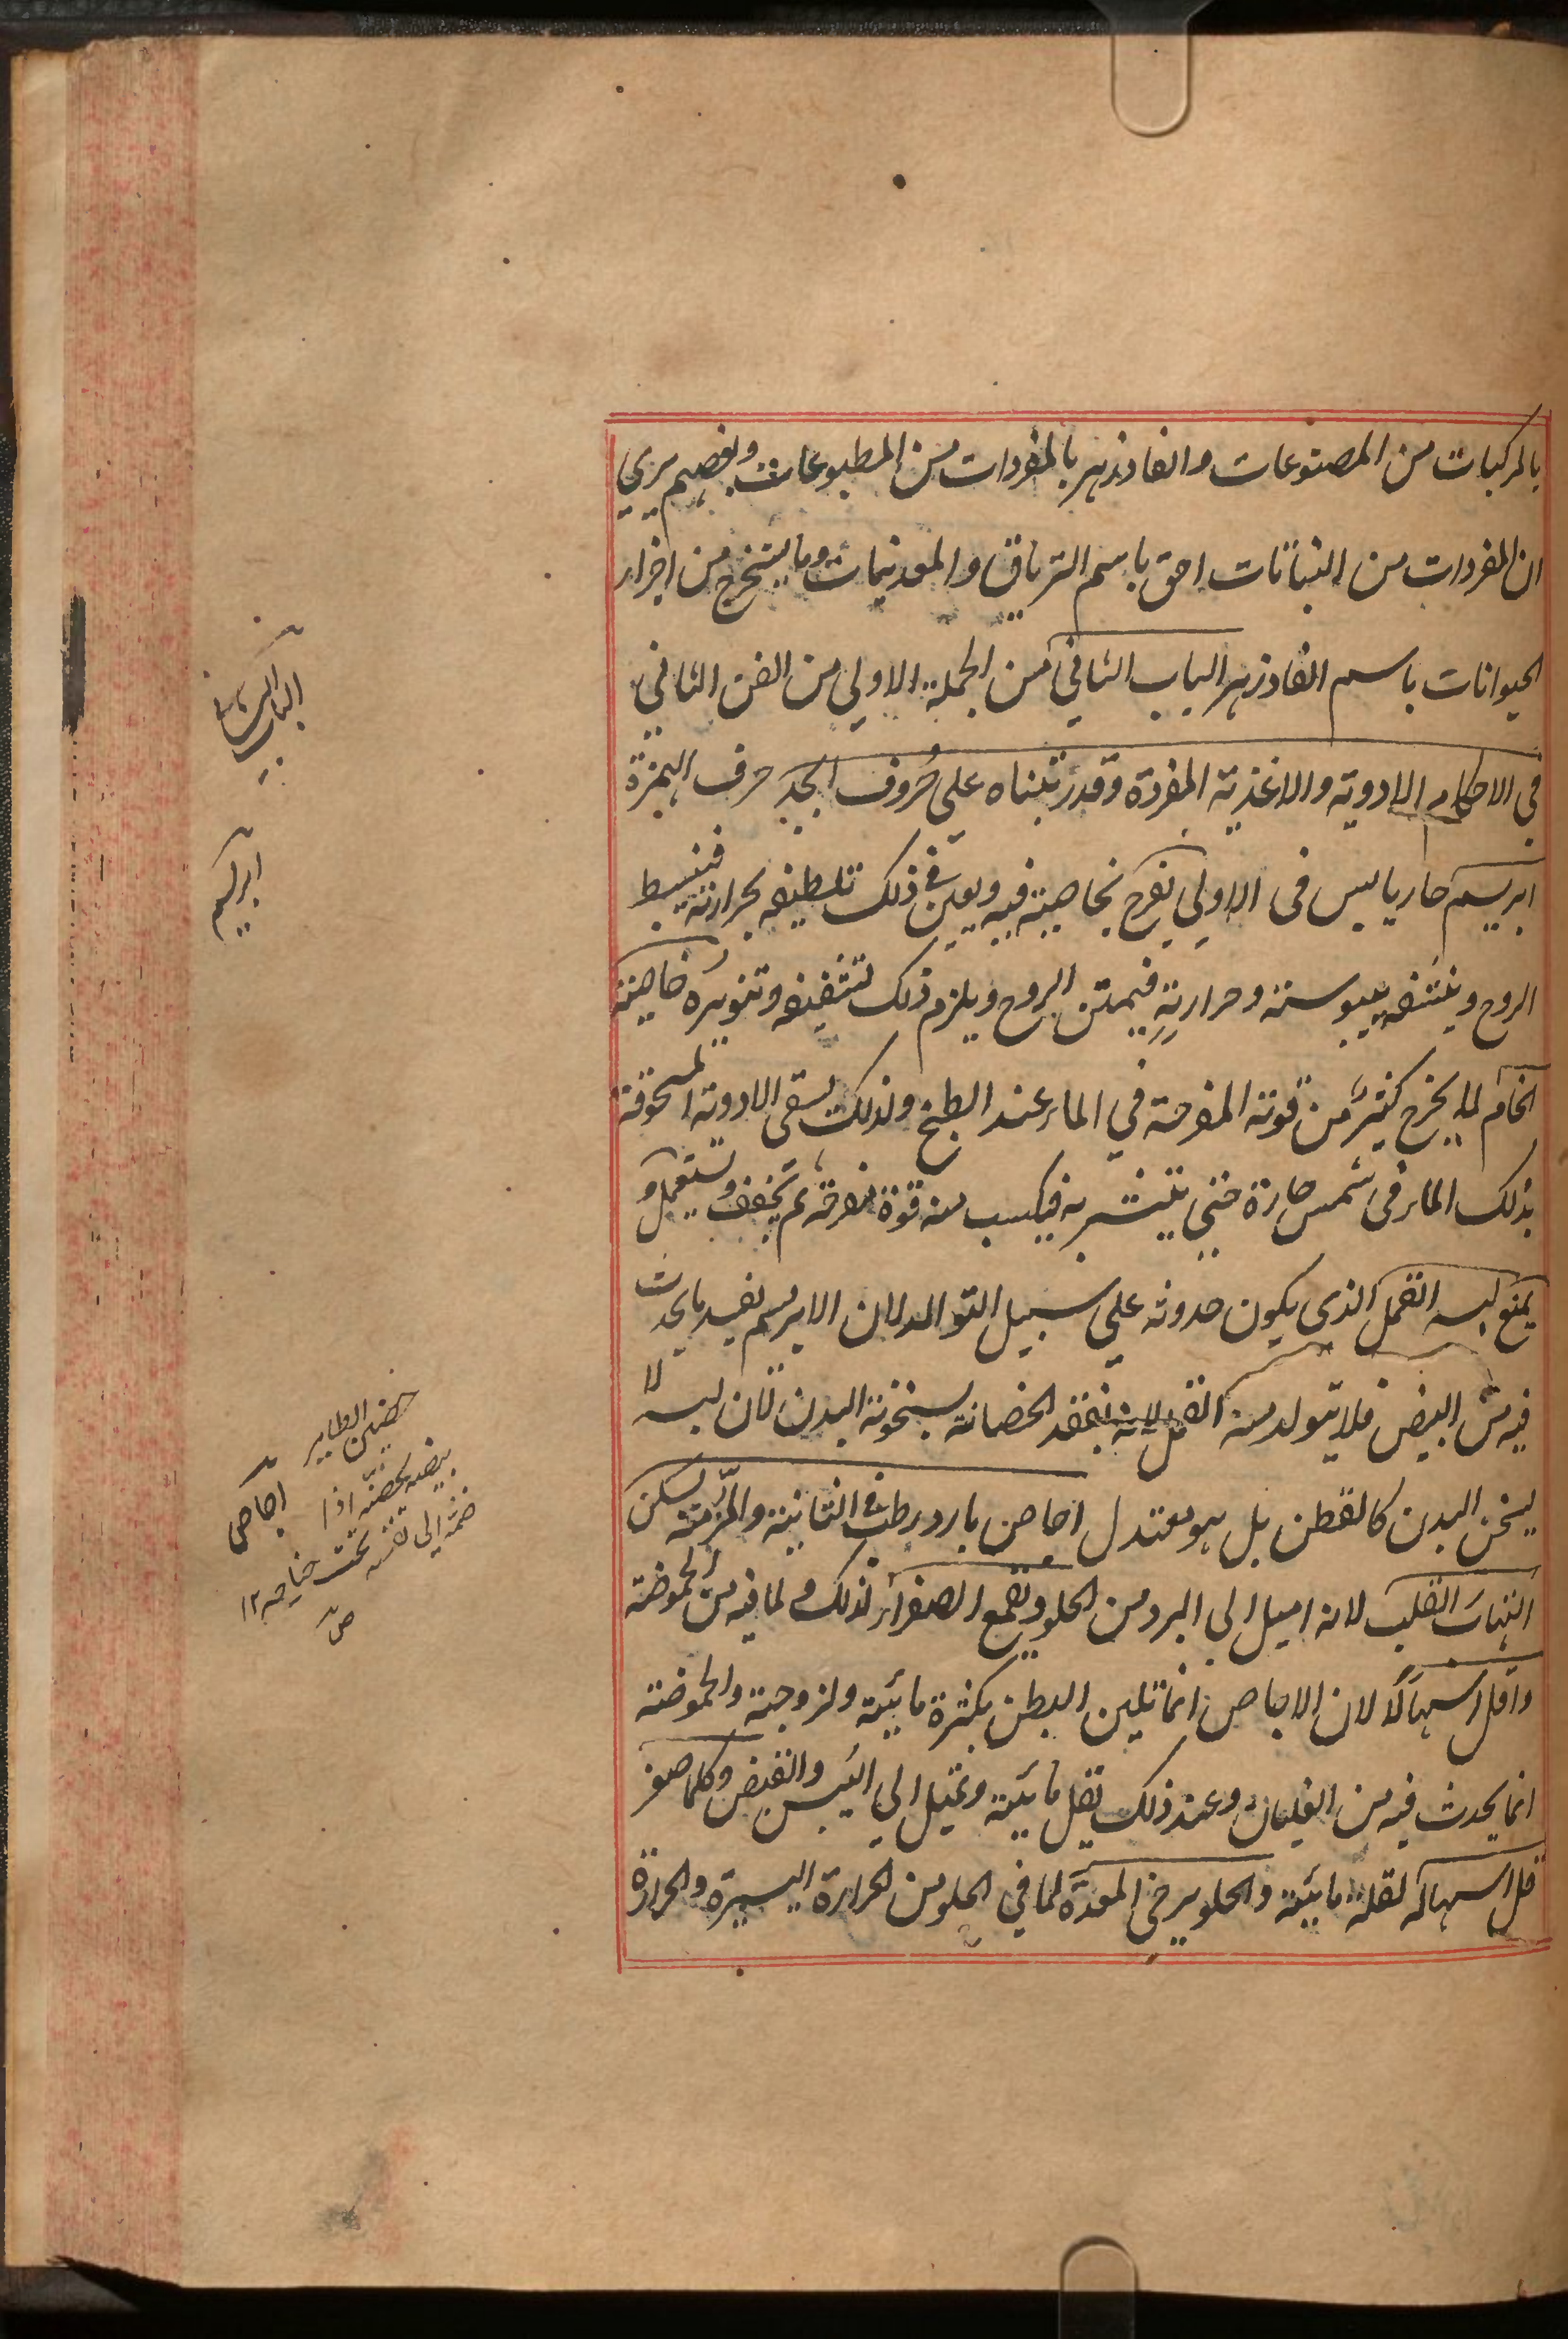 بالمركبات من المصنوعات والفادزهر بالمفردات من المطبوعات وبعضهم يري
ان المفردات من النباتات احق باسم الترياق والمعدنيات وما يستخرج من اجزاء
الحيوانات باسم الفادزهر الباب الثاني من الجملة الاولي من الفن الثاني
في الاحكام الادوية والاغذية المفردة وقد رتبناه علي حُروف ابجد حرف الهمزة
ابريسم حار يابس في الاولي يفرح بخاصية فيه ويعين في ذلك تلطيفه بحرارته فينبسط
الروح وينشفه بيبوسته وحرارته فيمتن الروح ويلزم ذلك تشفيفه وتنويره خاصيته
الخام لما يخرج كثير من قوته المفرحة في الماء عند الطبخ ولذلك يسقي الادوية المسحوقة
بذلك الماء في شمس حارة حتي يتشربه فيكسب منه قوة مفرحة ثم يجفف ويستعمل و
يمنع لبسه القمل الذي يكون حدوثه علي سبيل التوالد لان الابريسم يفسد ما يحدث
فيه من البيض فلا يتولد منه القمل لانه يفقد الحضانة بسخونة البدن لان لبسه لا
يسخن البدن كالقطن بل هو معتدل اجاص بارد رطب في الثانية والمزمنه يسكن
التهاب القلب لانه اميل الي البرد من الحلو ويقمع الصفراء لذلك و لما فيه من الحموضة
واقل اسهالًا لان الاجاص انما تلين البطن بكثرة مائيته ولزوجته والحموضته
انما يحدث فيه من الغليان وعند ذلك يقل مائيته وتميل الي اليبس والقبض وكلما صغر
قل اسهاله لقلة مائيته والحلو يرخي المعدة لما في الحلو من الحرارة اليسيرة والحرارة
الباب الثاني
ابريسم
اجاص
حضن الطاير
بيضه يحضنه اذا
ضمه الي نفسه تحت جناحه ١٢
ص